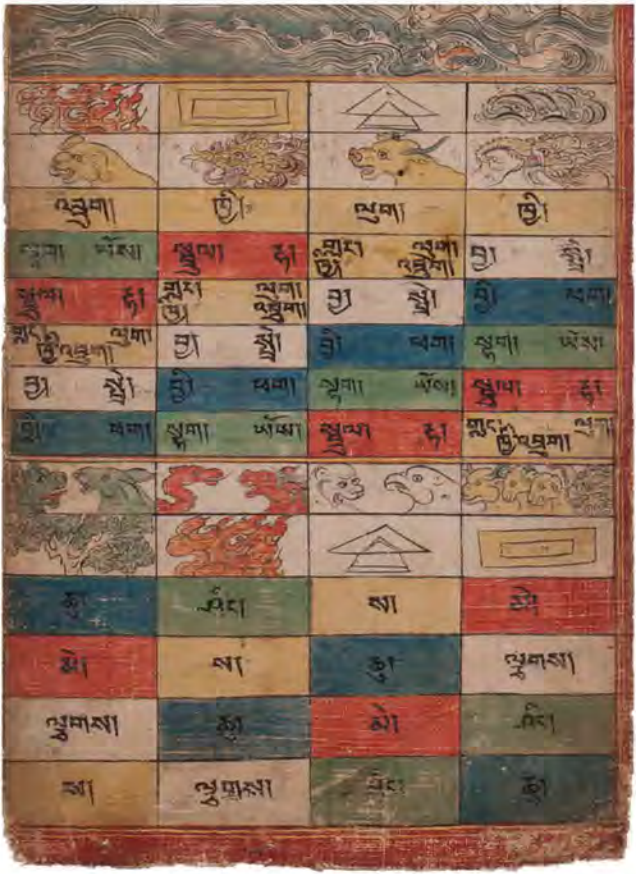 འབྲུག། ཁྱི། ལུག། ཁྱི།
སྟག། ཡོས། སྦྲུལ། རྟ། གླང་ ལུག། ཁྱི། འབྲུག། བྱ། སྤྲེ།
སྦྲུལ། རྟ། གླང་ ལུག། ཁྱི། འབྲུག། བྱ། སྤྲེ། བྱི། ཕག།
གླང་ ལུག། ཁྱི་འབྲུག། བྱ། སྤྲེ། བྱི། ཕག། སྟག། ཡོས།
བྱ། སྤྲེ། བྱི། ཕག། སྟག། ཡོས། སྦྲུལ། རྟ།
བྱི། ཕག། སྟག། ཡོས། སྦྲུལ། རྟ། གླང་ ལུག། ཁྱི་འབྲུག།
ཆུ། ཤིང་། ས། མེ།
མེ། ས། ཆུ། ལྕགས།
ལྕགས། ཆུ། མེ། ཤིང་།
ས། ལྕགས། ཤིང་། ཆུ།